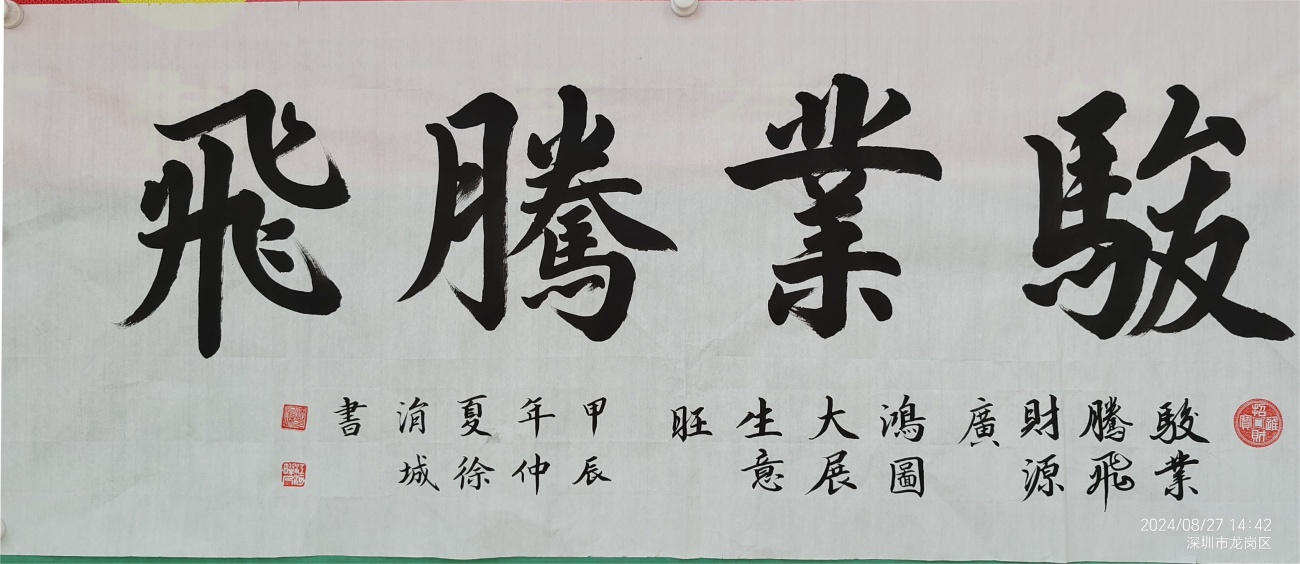 駿業騰飛
招財進寶
駿業
騰飛
財源
廣
鴻圖
大展
生意
旺
甲辰
年仲
夏徐
涓城
書
2024/08/27 14:42
深圳市龙岗区